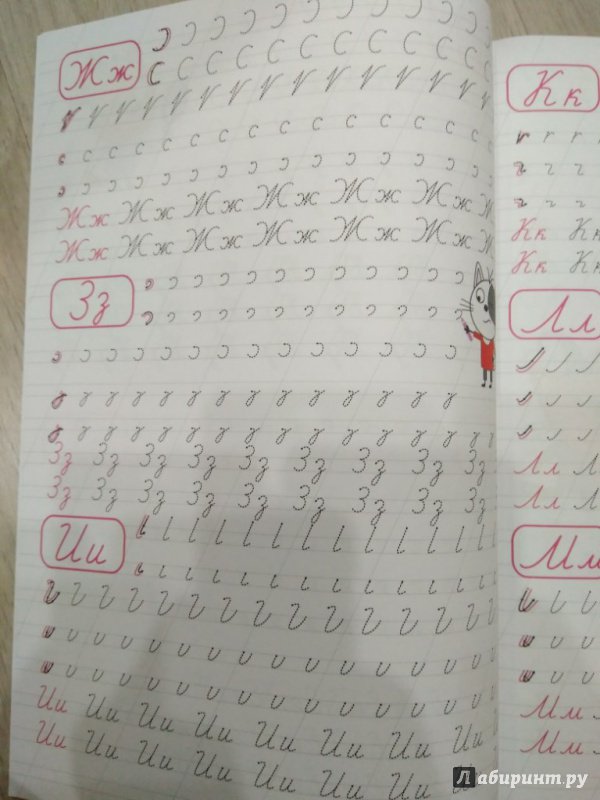 Жж
Жж Жж Жж Жж Жж Жж Ж
Жж Жж Жж Жж Жж Жж Ж
Зз
Зз Зз Зз Зз Зз Зз Зз Зз Зз
Зз Зз Зз Зз Зз Зз Зз Зз Зз
Ии
Ии Ии Ии Ии Ии Ии Ии Ии
Ии Ии Ии Ии Ии Ии Ии Ии
Кк
Кк Кк
Кк Кк
Лл
Лл Л
Лл Л
Мм
Мм
Мм
Лабиринт.ру